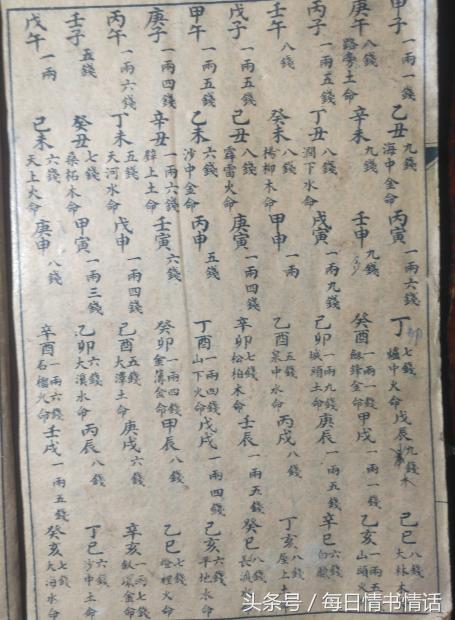 甲子 一兩一錢 乙丑 九錢 海中金命 丙寅 一兩六錢 丁卯 七錢 爐中火命 戊辰 九錢 木 己巳 八錢 大林木
庚午 八錢 路旁土命 辛未 九錢 壬申 九錢 癸酉 一兩一錢 劍鋒金命 甲戌 一兩一錢 乙亥 一兩五 山頭火
丙子 一兩五錢 丁丑 八錢 澗下水命 戊寅 一兩九錢 己卯 一兩九錢 城頭土命 庚辰 一兩五錢 辛巳 六錢 白
壬午 八錢 癸未 八錢 楊柳木命 甲申 一兩 乙酉 五錢 泉中水命 丙戌 八錢 丁亥 八錢 屋上土
戊子 一兩五錢 己丑 八錢 霹雷火命 庚寅 一兩四錢 辛卯 七錢 松柏木命 壬辰 一兩五錢 癸巳 八錢 長流
甲午 一兩五錢 乙未 六錢 沙中金命 丙申 五錢 丁酉 一兩四錢 山下火命 戊戌 一兩四錢 己亥 六錢 平地水命
庚子 一兩四錢 辛丑 一兩六錢 壁上土命 壬寅 六錢 癸卯 一兩四錢 金薄金命 甲辰 八錢 乙巳 七錢 燈裡火命
丙午 一兩六錢 丁未 五錢 天河水命 戊申 一兩四錢 己酉 五錢 大澤土命 庚戌 六錢 辛亥 一兩七錢 釵環金命
壬子 五錢 癸丑 七錢 桑柘木命 甲寅 一兩三錢 乙卯 六錢 大溪水命 丙辰 八錢 丁巳 六錢 沙中土命
戊午 一兩 己未 六錢 天上火命 庚申 八錢 辛酉 一兩六錢 石榴火命 壬戌 一兩五錢 癸亥 七錢 大海水命
头条号 / 每日情书情话